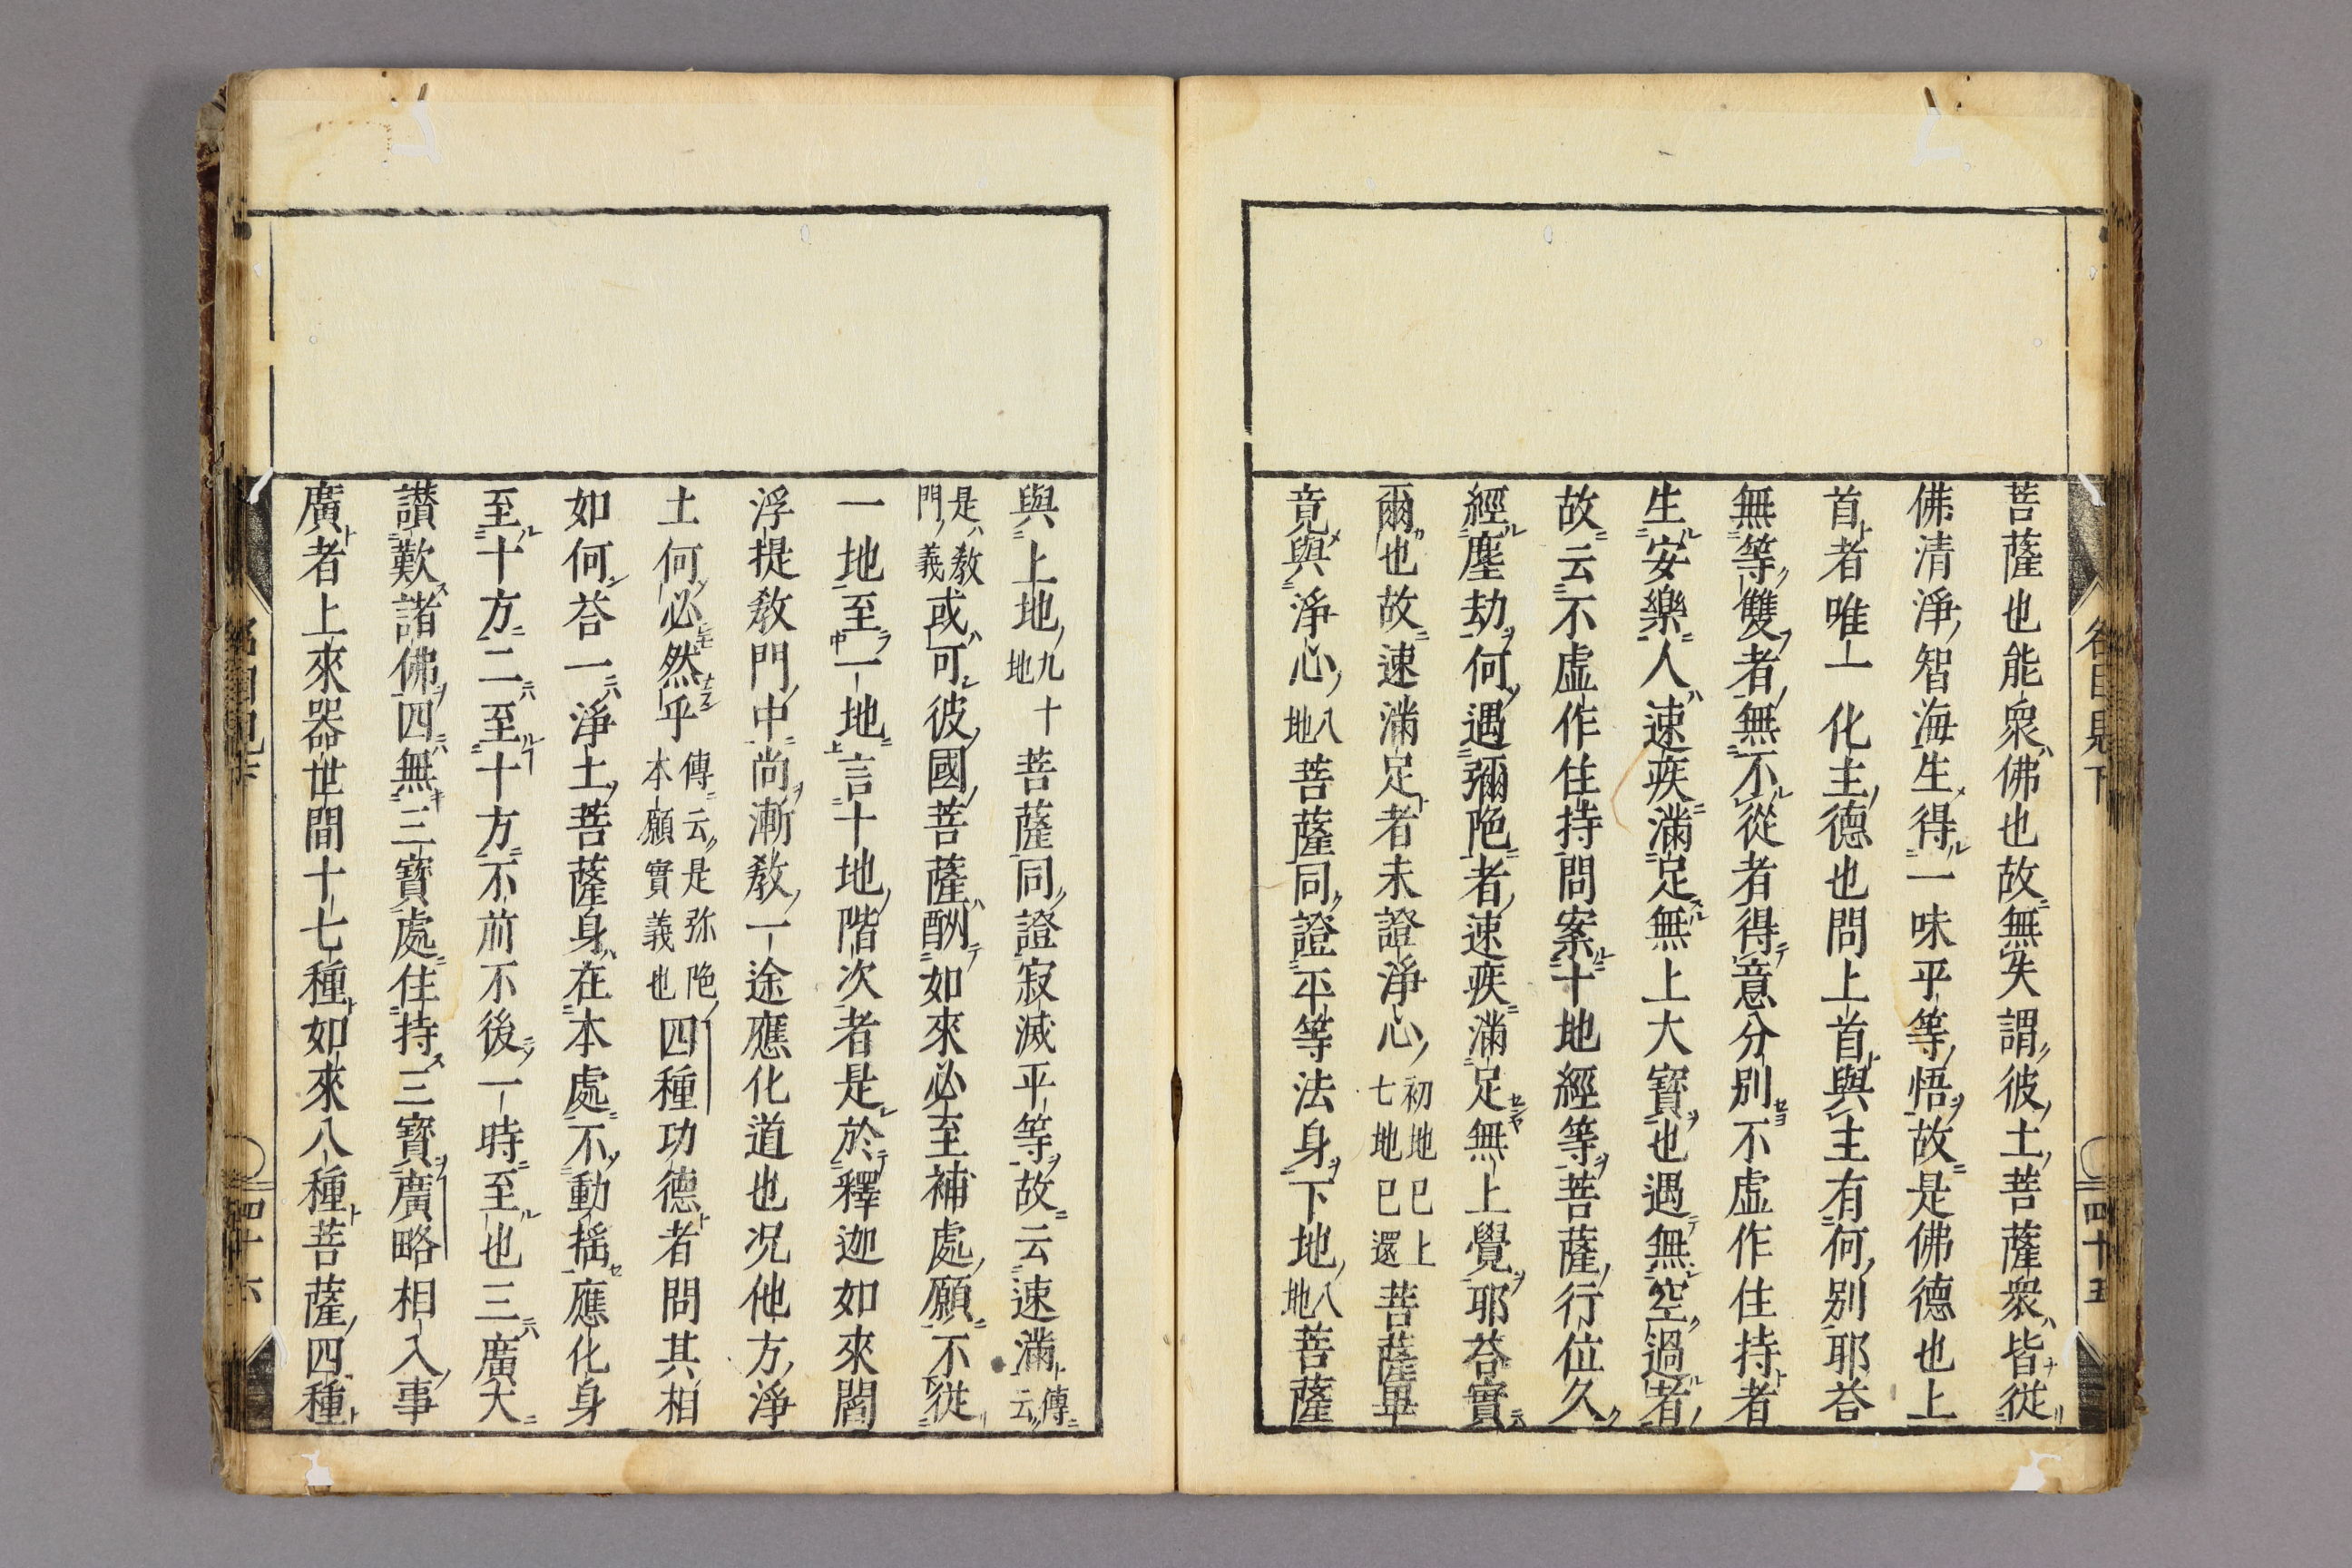 菩薩也能衆佛也故無失謂彼土菩薩衆皆從
佛清淨智海生得一味平等悟故是佛德也上
首者唯一化主德也問上首與主有何別耶荅
無等雙者無不從者得意分別不虚作住持者
生安樂人速疾滿足無上大寳也遇無空過者
故云不虚作住持問案十地經等菩薩行位久
經塵劫何遇彌陁者速疾滿足無上覺耶荅實
爾也故速滿足者未證淨心初地已上七地已還菩薩畢
竟與淨心八地菩薩同證平等法身下地八地菩薩
四十五
與上地九十地菩薩同證寂滅平等故云速滿傳云
是教門義或可彼國菩薩酬如來必至補處願不從
一地至一地言十地階次者是於釋迦如來閻
浮提教門中尚漸教一途應化道也况他方淨
土何必然乎傳云是弥陁本願實義也四種功德者問其相
如何荅一淨土菩薩身在本處不動摇應化身
至十方二至十方不前不後一時至也三廣大
讃歎諸佛四無三寳處住持三寳廣略相入事
廣者上來器世間十七種如來八種菩薩四種
四十六